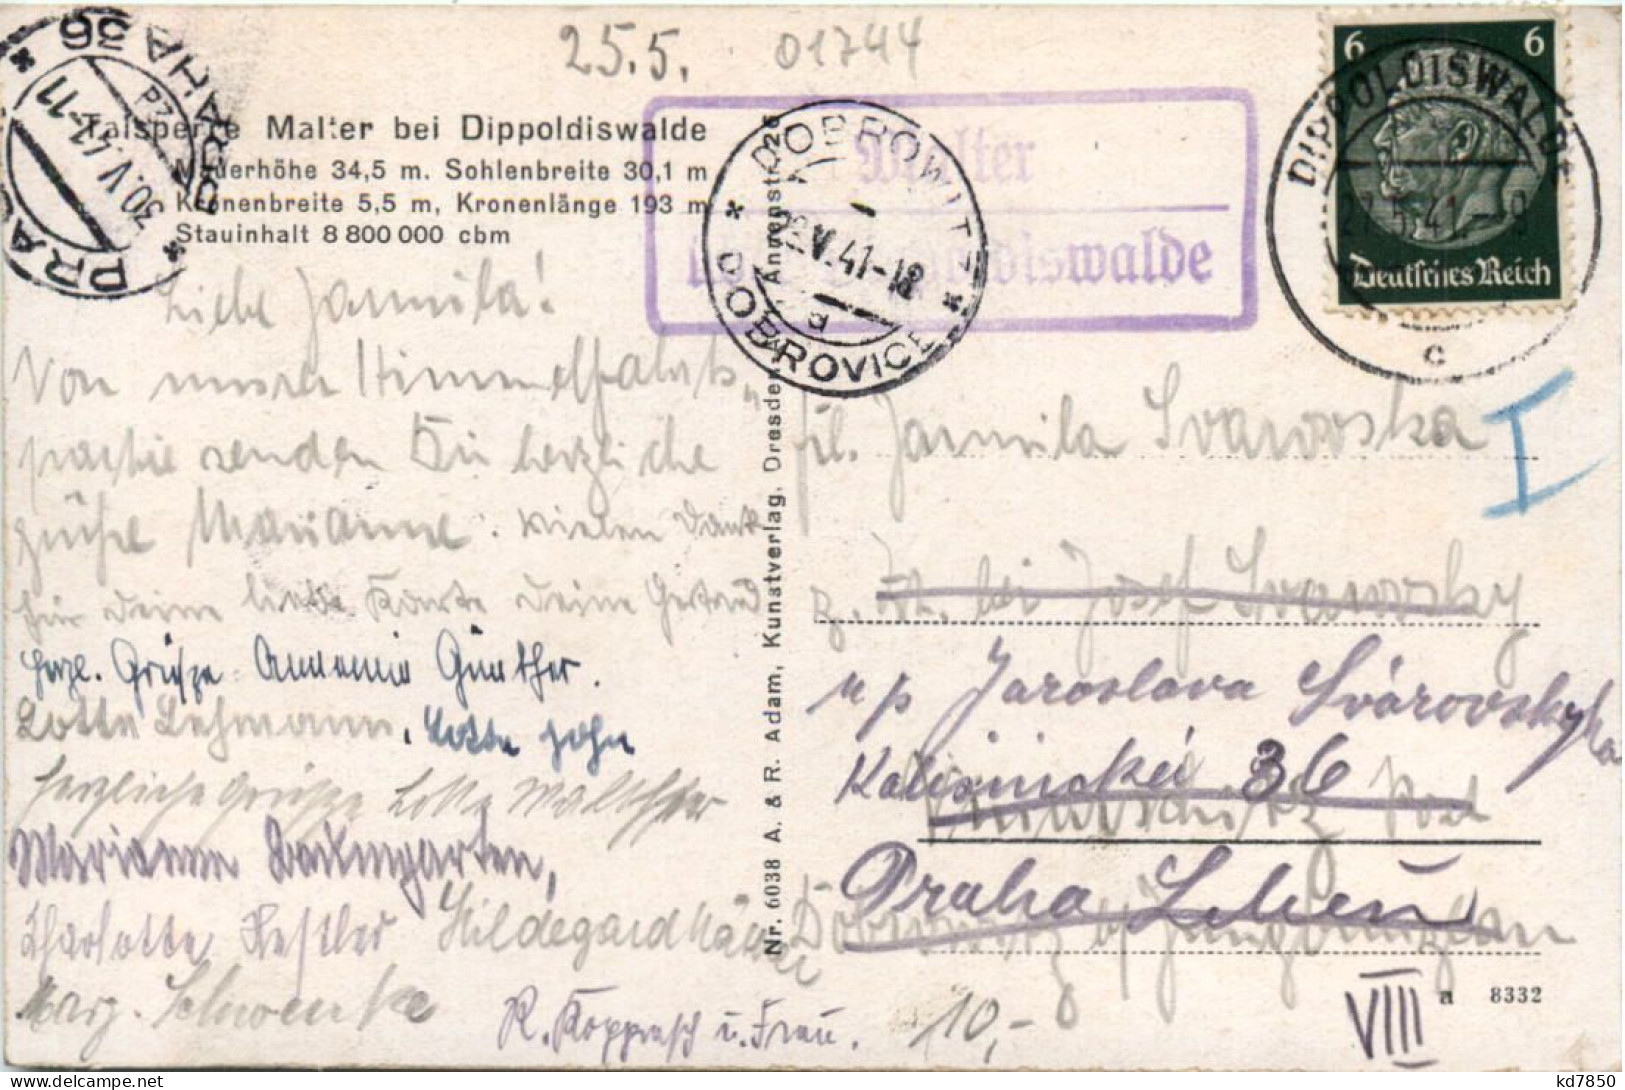 25.5. 01744
Talsperre Malter bei Dippoldiswalde
Mauerhöhe 34,5 m. Sohlenbreite 30,1 m
Kronenbreite 5,5 m, Kronenlänge 193 m
Stauinhalt 8 800 000 cbm
PRAG PRAHA 36
30.V.41-11
Malter
Dippoldiswalde
DOBROWITZ
22.V.41-18
a
DOBROVICE
6 6
Deutsches Reich
DIPPOLDISWALDE
27.5.41
c
Liebe Jarmila!
Von unsrer Himmelfahrts-
partie senden Dir herzliche
Grüße Marianne. Vielen Dank
für Deine liebe Karte Deine Gertrud
Herzl. Grüße Annemie Günther.
Lotte Lehmann, Lotte John
Herzliche Grüße Lotte Walther
Marianne Baumgarten,
Charlotte Kestler Hildegard
Marg. Schwenke
R. Koppasch u. Frau.
Nr. 6038 A. & R. Adam, Kunstverlag, Dresden Annenstr. 26
Frl. Jarmila Svarovska
I
z. Zt. bei Josef Svarovsky
u p Jaroslava Svárovský
36
Post
Praha Lieben
Dobrowitz b/ Jungbunzlau
10,-
VIII
a 8332
kd7850